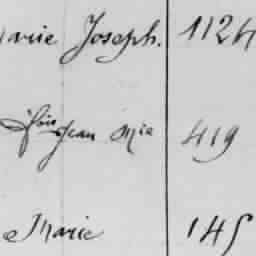 Marie Joseph. 1124
fçois Jean Mie 419
Marie 145